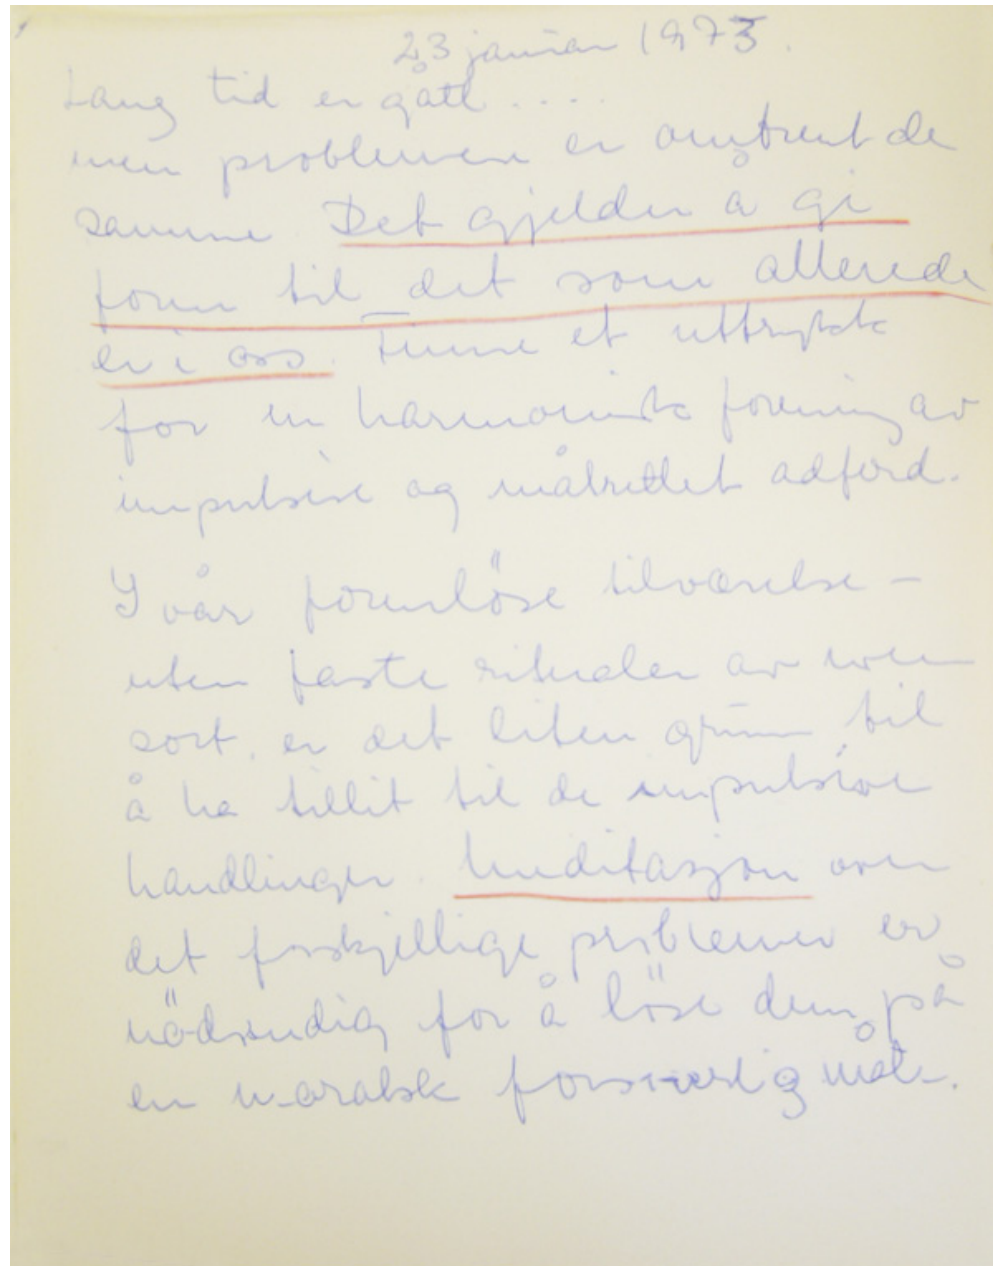 23 januar 1973.
Lang tid er gått.....
men problemene er omtrent de
samme. Det gjelder å gi
form til det som allerede
er i oss. Finne et uttrykk
for en harmonisk forening av
impulsive og målrettet adferd.
I vår formlöse tilværelse -
uten faste ritualer av noen
sort, er det liten grunn til
å ha tillit til de impulsive
handlinger. Meditasjon over
det forskjellige problemer er
nödvendig for å löse dem på
en moralsk forsvarlig måte.